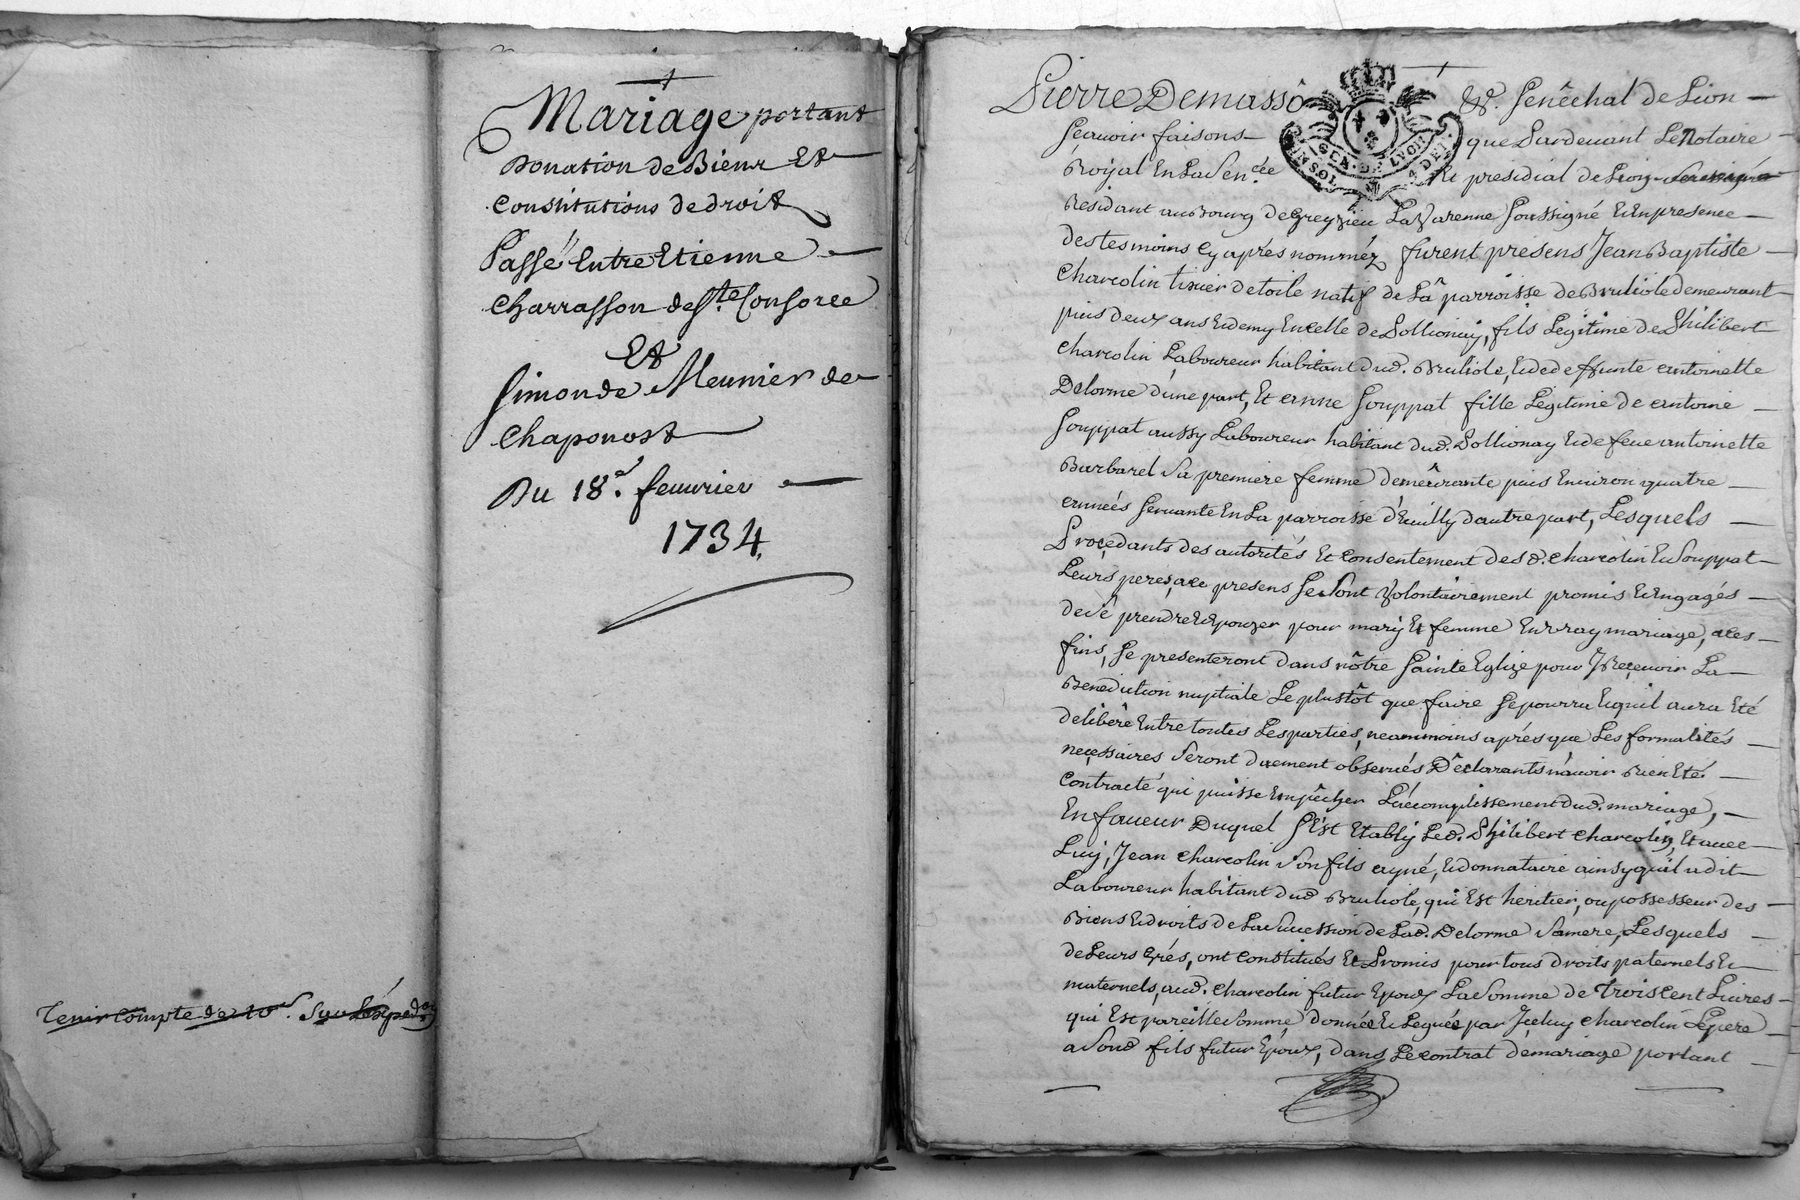 Mariage portant
Donation de Biens Et
Constitutions de droit
Passé Entre Etienne
Charrasson de Ste. Consorce
Et
Simonde Meunier de
Chaponost
Du 18e. feuurier
1734.
Tenir Compte de 10s. Sur
Pierre Demassô &c. Senêchal de Lion
Scauoir faisons que Pardeuant Le Notaire
Röyal En La Sen.cée Et presidial de Lion
Residant au Bourg de Greyzieu La Varenne Soussigné Et En presence
des tesmoins Cy aprés nomméz furent presens Jean Baptiste
Charcolin tisier de toile natif de Lâ parroisse de Brulïole demeurant
puis deux ans Et demy En Celle de Pollionay, fils Legitime de Philibert
Charcolin Laboureur habitant dud. Brulïole, Et de deffunte antoinette
Delorme d'une part, Et anne Souppat fille Legitime de antoine
Souppat aussy Laboureur habitant dud. Pollionay Et de feue antoinette
Burbarel Sa premiere femme demeûrante puis Enuiron quatre
années Seruante En La parroisse d'Euilly d'autre part, Lesquels
Procedants des autorités Et Consentement desd. Charcolin Et Souppat
Leurs peres, a ce presens Se Sont Volontairement promis Et Engagés
de Sê prendre Et Epouzer pour mary Et femme En Vray mariage, a Ces
fins, Se presenteront dans nôtre Sainte Eglize pour y Reçeuoir La
Benediction nuptiale Le plustôt que faire Se pourra Et quil aura Eté
delibêré Entre toutes Les parties, neammoins aprés que Les formalités
neçessaires Seront düement obserués Dêclarants n'auoir Rien Eté
Contracté qui puisse Empêcher L'accomplissement dud. mariage,
En faueur Duquel S'Est Etably Led. Philibert Charcolin, Et auec
Luy, Jean Charcolin Son fils ayné, Et donnataire ainsy quil a dit
Laboureur habitant dud Brulïole, qui Est heritier, ou possesseur des
Biens Et droits de La Suecession de Lad. Delorme Sa mere, Lesquels
de Leurs Grés, ont Constitués Et Promis pour tous droits paternels Et
maternels, aud. Charcolin futur Epoux La Somme de Trois Cent Liures
qui Est pareille Somme donnée Et Leguée par Iceluy Charcolin Le pere
a Sond fils futur Epoux, dans Le Contrat de mariage portant